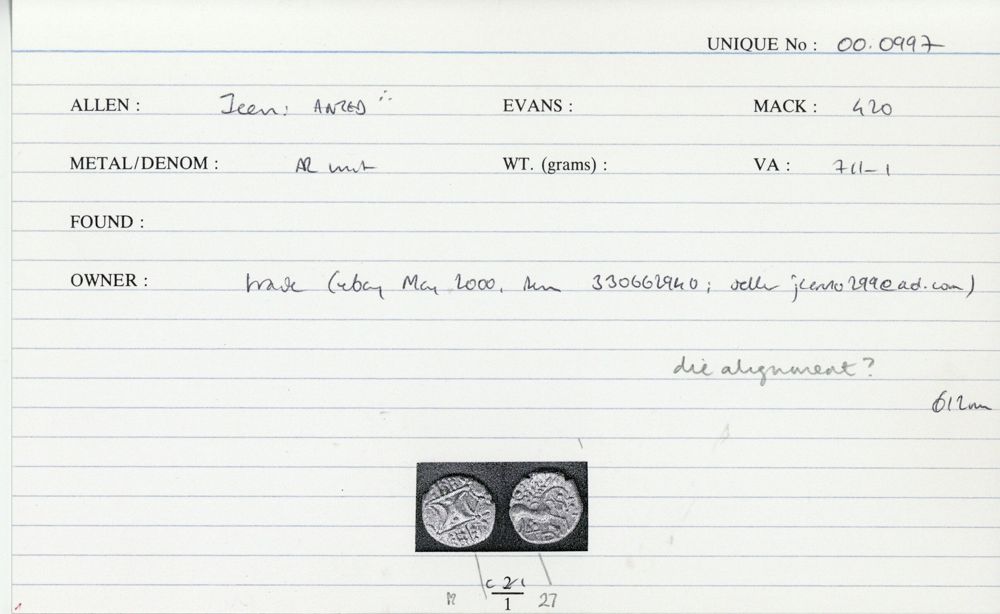 UNIQUE No : 00.0997
ALLEN : Icen: ANTED EVANS : MACK : 420
METAL/DENOM : AR unit WT. (grams) : VA : 711-1
FOUND :
OWNER : trade (ebay May 2000, item 330662940; seller
die alignment?
1
27